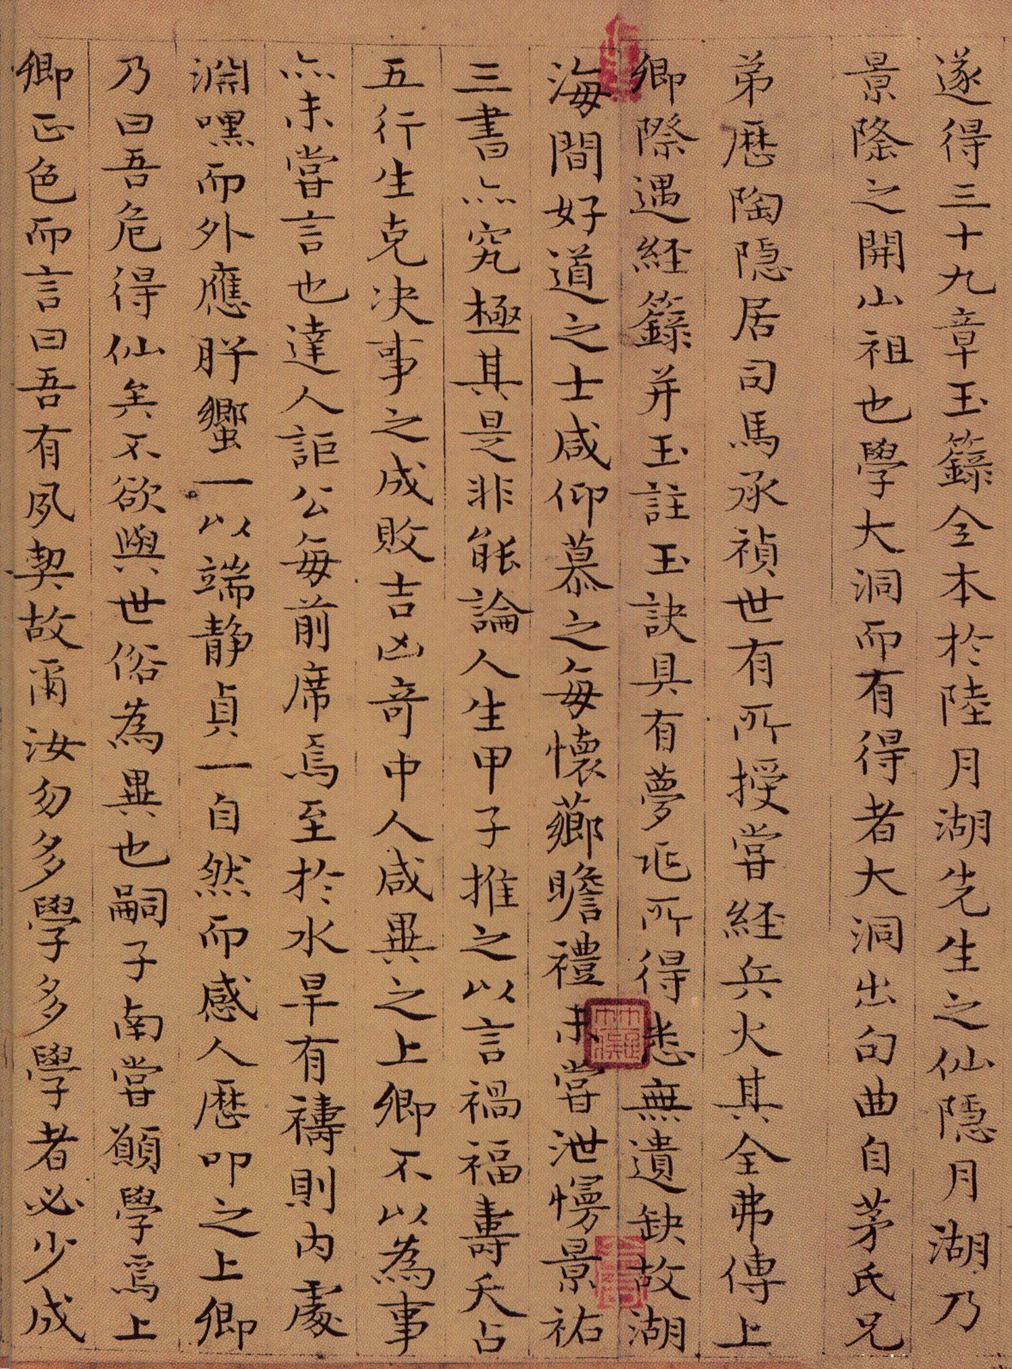 遂得三十九章玉籙全本於陸月湖先生之仙隱月湖乃
景隆之開山祖也學大洞而有得者大洞出句曲自茅氏兄
弟歷陶隱居司馬承禎世有所授嘗經兵火其全弗傳上
卿際遇経籙并玉註玉訣具有夢兆所得悉無遺缺故湖
海間好道之士咸仰慕之每懷薌瞻禮未嘗泄慢景祐
三書亦究極其是非能論人生甲子推之以言禍福壽夭占
五行生克决事之成敗吉凶奇中人咸異之上卿不以為事
亦未嘗言也達人詎公每前席焉至於水旱有禱則内處
淵嘿而外應肸蠁一以端靜貞一自然而感人歷叩之上卿
乃曰吾危得仙矣不欲與世俗為異也嗣子南嘗願學焉上
卿正色而言曰吾有夙契故爾汝勿多學多學者必少成